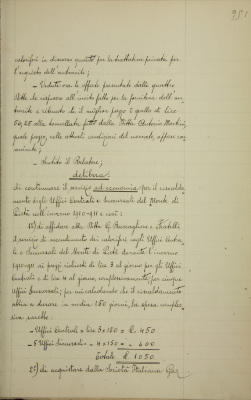 caloriferi in diverse quanto per la trattativa privata per
l'acquisto dell'antracite;
- Vedute ora le offerte presentate dalle quattro
Ditte che risposero all'invito fatto per la fornitura dell'an-
tracite e ritenuto che il miglior prezzo è quello di lire
50,25 alla tonnellata fatto dalla Ditta Antonio
quale prezzo, nelle attuali condizioni del mercato, appare con-
veniente;
- Sentito il Relatore;
delibera:
di continuare il servizio ad economia per il riscalda-
mento degli Uffici Centrali e Succursali del Monte di
Pietà nell'inverno 1910-911 e così:
1º) di affidare alla Ditta G. & Fratelli
il servizio di accendimento dei caloriferi negli Uffici Centra-
li e Succursali del Monte di Pietà durante l'inverno
1910-911 ai prezzi richiesti di lire 3 al giorno per gli Uffici
Centrali e di lire 4 al giorno, complessivamente, per cinque
Uffici Succursali; per cui calcolando che il riscaldamento
abbia a durare in media 150 giorni, la spesa comples-
siva sarebbe:
- Uffici Centrali = lire 3 x 150 = £. 450
- 5 Uffici Succursali = " 4 x 150 = " 600
Totale £. 1050
2º) di acquistare dalla Società Italiana Gaz